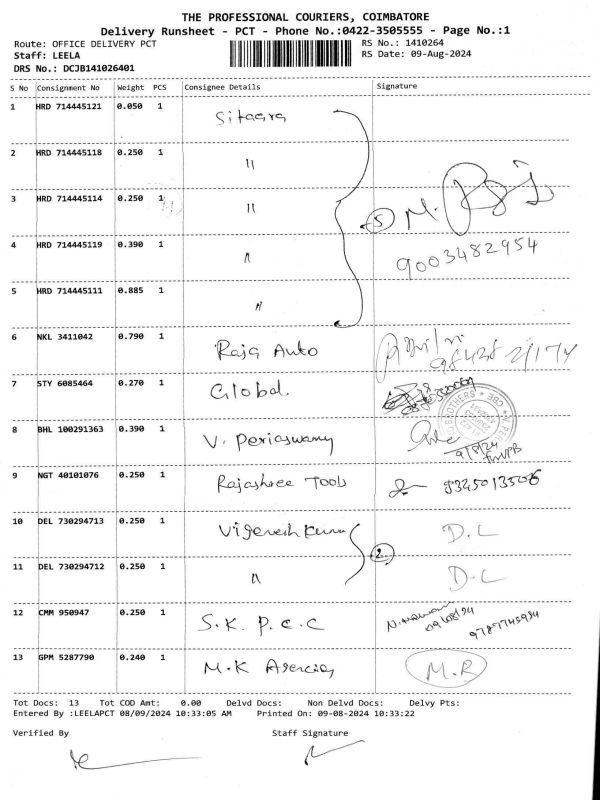 THE PROFESSIONAL COURIERS, COIMBATORE
Delivery Runsheet - PCT - Phone No.:0422-3505555 - Page No.:1
Route: OFFICE DELIVERY PCT RS No.: 1410264
Staff: LEELA RS Date: 09-Aug-2024
DRS No.: DCJB141026401
S No Consignment No Weight PCS Consignee Details Signature
1 HRD 714445121 0.050 1 Sitaara
2 HRD 714445118 0.250 1 "
3 HRD 714445114 0.250 1 " 5 M.
4 HRD 714445119 0.390 1 " 9003482954
5 HRD 714445111 0.885 1 "
6 NKL 3411042 0.790 1 Raja Auto
7 STY 6085464 0.270 1 Global.
8 BHL 100291363 0.390 1 V. Periaswamy 9/8/24
9 NGT 40101076 0.250 1 Rajashree Tools
10 DEL 730294713 0.250 1 Vignesh Kumar D.L
2
11 DEL 730294712 0.250 1 " D.L
12 CMM 950947 0.250 1 S.K. P.C.C 09/08/24
13 GPM 5287790 0.240 1 M.K Agencies M.R
Tot Docs: 13 Tot COD Amt: 0.00 Delvd Docs: Non Delvd Docs: Delvy Pts:
Entered By :LEELAPCT 08/09/2024 10:33:05 AM Printed On: 09-08-2024 10:33:22
Verified By Staff Signature